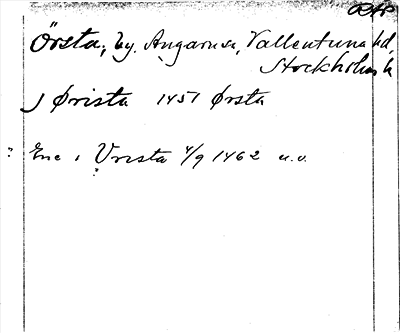 Örsta, by. Angarn sn, Vallentuna hd,
Stockholms l
J Ørista 1451 Ørsta
Eric i Vrista 4/9 1462 u.v.